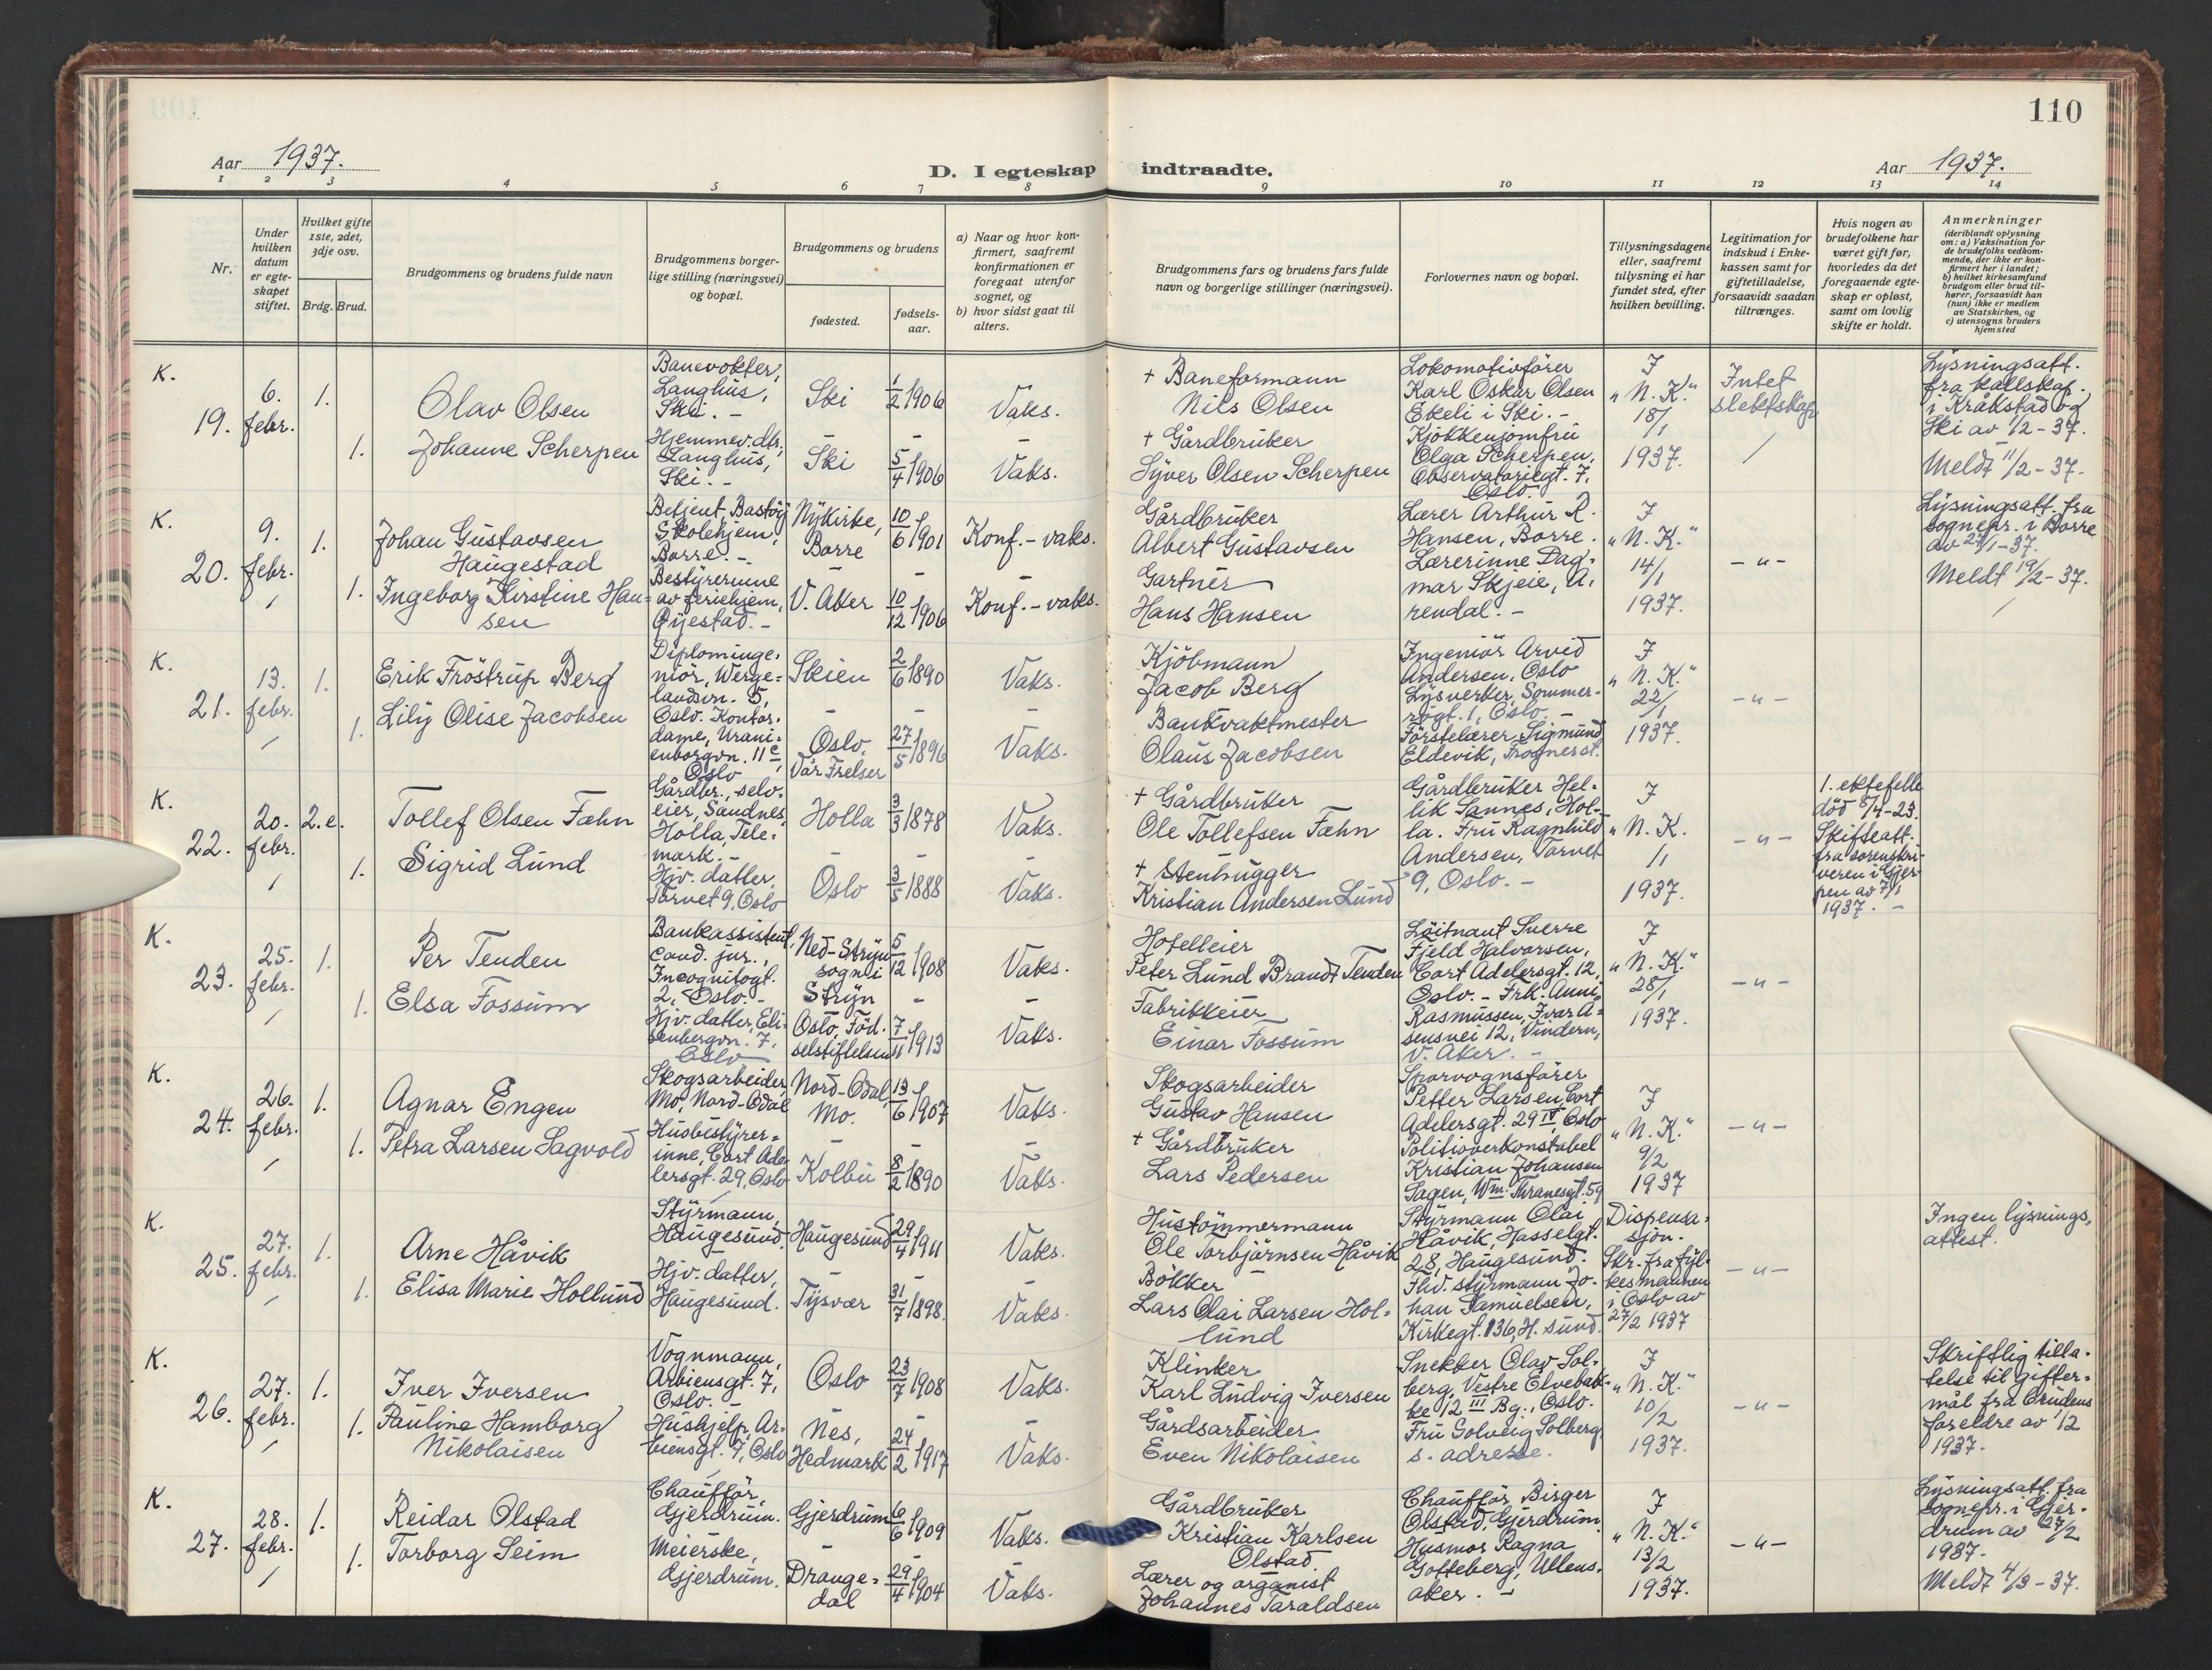 110
Aar 1937.
D. I egteskap indtraadte.
Aar 1937.
1 2 3 4 5 6 7 8 9 10 11 12 13 14
Nr.
Under hvilken datum er egteskapet stiftet.
Hvilket gifte 1ste, 2det, 3dje osv.
Brdg. Brud.
Brudgommens og brudens fulde navn
Brudgommens borgerlige stilling (næringsvei) og bopæl.
Brudgommens og brudens
fødested.
fødselsaar.
a) Naar og hvor konfirmert, saafremt konfirmationen er foregaat utenfor sognet, og
b) hvor sidst gaat til alters.
Brudgommens fars og brudens fars fulde navn og borgerlige stillinger (næringsvei).
Forlovernes navn og bopæl.
Tillysningsdagene eller, saafremt tillysning ei har fundet sted, efter hvilken bevilling.
Legitimation for indskud i Enkekassen samt for giftetilladelse, forsaavidt saadan tiltrænges.
Hvis nogen av brudefolkene har været gift før, hvorledes da det foregaaende egteskap er opløst, samt om lovlig skifte er holdt.
Anmerkninger
(deriblandt oplysning om: a) Vaksination for de brudefolks vedkommende, der ikke er konfirmert her i landet;
b) hvilket kirkesamfund brudgom eller brud tilhører, forsaavidt han (hun) ikke er medlem av Statskirken, og
c) utensogns bruders hjemsted
K.
19.
6. febr.
1.
Olav Olsen
Banevokter, Langhus, Ski. -
Ski
1/2 1906
Vaks.
+ Baneformann
Nils Olsen
Lokomotivfører
Karl Oskar Olsen
Ekeli i Ski. -
J
"N. K."
18/1
1937.
Intet slektskap
Lysningsatt.
fra kallskap.
i Kråkstad og
Ski av 1/2-37.
Meldt 11/2-37.
1.
Johanne Scherpen
Hjemmev. dtr., Langhus, Ski. -
Ski
5/4 1906
Vaks.
+ Gårdbruker
Syver Olsen Scherpen
Kjøkkenjomfru
Olga Scherpen,
Observatoriegt. 7,
Oslo.
K.
20.
9. febr.
1.
Johan Gustavsen
Haugestad
Betjent, Bastøy
Skolehjem,
Borre. -
Nykirke,
Borre
10/6 1901
Konf. - vaks.
Gårdbruker
Albert Gustavsen
Lærer Arthur R.
Hansen, Borre.
J
"N. K."
14/1
1937.
- " -
Lysningsatt. fra
sognepr. i Borre
av 27/1-37.
Meldt 19/2-37.
1.
Ingeborg Kirstine Hansen
Bestyrerinne
av feriehjem,
Øyestad. -
V. Aker
10/12 1906
Konf. - vaks.
Gartner
Hans Hansen
Lærerinne Dagmar Skjeie, Arendal. -
K.
21.
13. febr.
1.
Erik Fröstrup Berg
Diplomingeniör, Wergelandsvn. 5,
Oslo.
Skien
2/6 1890
Vaks.
Kjöbmann
Jacob Berg
Ingeniör Arvid
Andersen, Oslo
Lysverker, Sommerrogt. 1, Oslo. -
J
"N. K."
22/1
1937.
- " -
1.
Lily Olise Jacobsen
Kontordame, Uranienborgvn. 11 c,
Oslo
Oslo,
Vår Frelser
27/5 1896
Vaks.
Bankvaktmester
Olaus Jacobsen
Förstelærer Sigmund
Eldevik, Frognerst.
K.
22.
20. febr.
2. e.
Tollef Olsen Fæhn
Gårdbr., selveier, Sandnes,
Holla, Telemark. -
Holla
3/3 1878
Vaks.
+ Gårdbruker
Ole Tollefsen Fæhn
Gårdbruker Hellik Sannes, Holla. Fru Ragnhild
Andersen, Torvet
9, Oslo. -
J
"N. K.
1/1
1937.
- " -
1. ektefelle
död 5/4-23.
Skifteatt.
fra sorenskriveren i Gjerpen av 7/1
1937. -
1.
Sigrid Lund
Hjv. datter,
Torvet 9, Oslo
Oslo
3/5 1888
Vaks.
+ Stenhugger
Kristian Andersen Lund
K.
23.
25. febr.
1.
Per Tenden
Bankassistent,
cand. jur.,
Incognitogt.
2, Oslo. -
Ned-Stryn
sogn i
Stryn
5/12 1908
Vaks.
Hotelleier
Peter Lund Brandt Tenden
Löitnant Sverre
Fjeld Halvorsen,
Cort Adelersgt. 12,
Oslo. - Frk. Anni
Rasmussen, Ivar Asensvei 12, Vindern,
V. Aker. -
J
"N. K."
28/1
1937.
- " -
1.
Elsa Fossum
Hjv. datter, Elisenbergvn. 7,
Oslo
Oslo, Födselstiftelsen
7/11 1913
Vaks.
Fabrikkeier
Einar Fossum
K.
24.
26. febr.
1.
Agnar Engen
Skogsarbeider,
Mo, Nord-Odal
Nord-Odal,
Mo.
13/6 1907
Vaks.
Skogsarbeider
Gustav Hansen
Sporvognsfører
Petter Larsen, Cort
Adelersgt. 29 IV, Oslo
J
"N. K."
9/2
1937
- " -
1.
Petra Larsen Sagvold
Husbestyrerinne, Cort Adelersgt. 29, Oslo
Kolbu
8/2 1890
Vaks.
+ Gårdbruker
Lars Pedersen
Politioverkonstabel
Kristian Johansen
Sagen, Wm. Thranesgt. 59
K.
25.
27. febr.
1.
Arne Håvik
Styrmann,
Haugesund.
Haugesund
29/4 1911
Vaks.
Hustömmermann
Ole Torbjörnsen Håvik
Styrmann Olai
Håvik, Hasselgt.
28, Haugesund.
Dispensasjon.
Skr. fra fylkesmannen
i Oslo av
27/2 1937
- " -
Ingen lysningsattest.
1.
Elisa Marie Hollund
Hjv. datter,
Haugesund.
Tysvær
31/7 1898.
Vaks.
Bökker
Lars Olai Larsen Hollund
Fhv. styrmann Johan Samuelsen,
Kirkegt. 136, H. sund.
K.
26.
27. febr.
1.
Iver Iversen
Vognmann,
Arbiensgt. 7,
Oslo. -
Oslo
23/7 1908
Vaks.
Klinker
Karl Ludvig Iversen
Snekker Olav Solberg, Vestre Elvebakke 12 III Bg., Oslo.
J
"N. K."
10/2
1937.
- " -
Skriftlig tillatelse til giftermål fra brudens
foreldre av 1/2
1937. -
1.
Pauline Hamborg
Nikolaisen
Hushjelp, Arbiensgt. 7, Oslo
Nes,
Hedmark
24/2 1917
Vaks.
Gårdsarbeider
Even Nikolaisen
Fru Solveig Solberg
s. adresse.
K.
27.
28. febr.
1.
Reidar Olstad
Chaufför,
Gjerdrum.
Gjerdrum
6/6 1909
Vaks.
Gårdbruker
Kristian Karlsen
Olstad
Chauffør Birger
Olstad, Gjerdrum
J
"N. K."
13/2
1937.
- " -
Lysningsatt. fra
sognepr. i Gjerdrum av 27/2
1937.
Meldt 4/3-37.
1.
Torborg Seim
Meierske,
Gjerdrum.
Drangedal
29/4 1904
Vaks.
Lærer og organist
Johannes Taraldsen
Husmor Ragna
Gotteberg, Ullensaker. -